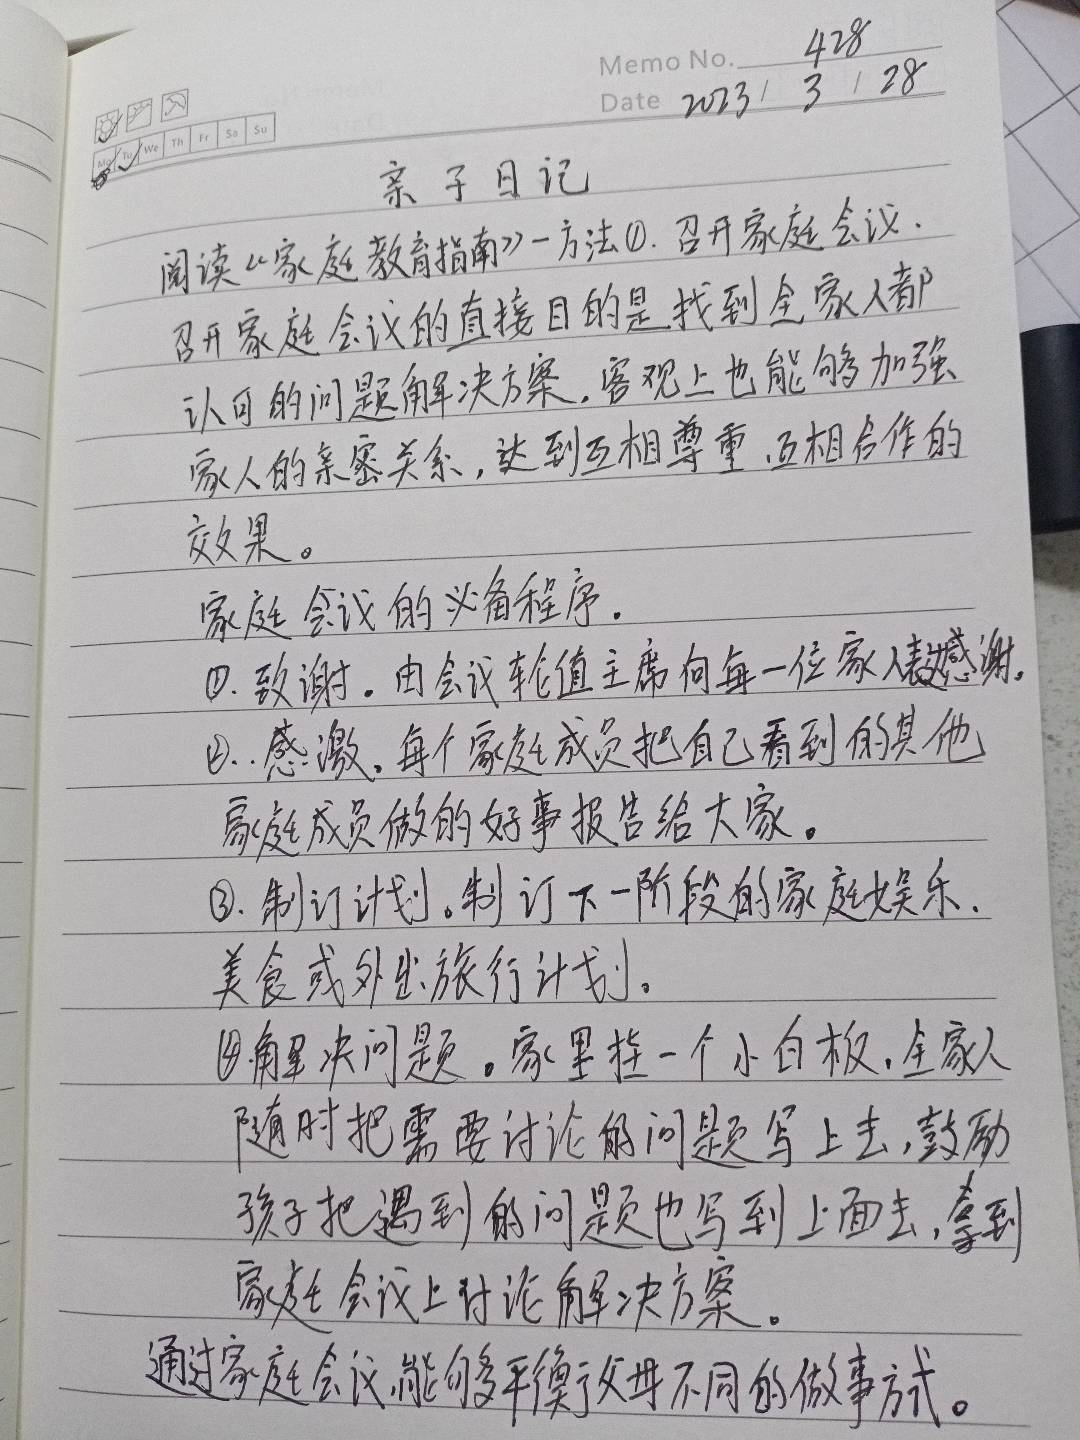 Memo No. 428
Date 2023 / 3 / 28
Mo Tu We Th Fr Sa Su
亲子日记
阅读《家庭教育指南》一方法①.召开家庭会议.
召开家庭会议的直接目的是找到全家人都
认可的问题解决方案,客观上也能够加强
家人的亲密关系,达到互相尊重、互相合作的
效果。
家庭会议的必备程序.
①.致谢。由会议轮值主席向每一位家人表感谢.
②..感激,每个家庭成员把自己看到的其他
家庭成员做的好事报告给大家。
③.制订计划。制订下一阶段的家庭娱乐.
美食或外出旅行计划。
④.解决问题。家里挂一个小白板,全家人
随时把需要讨论的问题写上去,鼓励
孩子把遇到的问题也写到上面去,拿到
家庭会议上讨论解决方案。
通过家庭会议,能够平衡父母不同的做事方式。